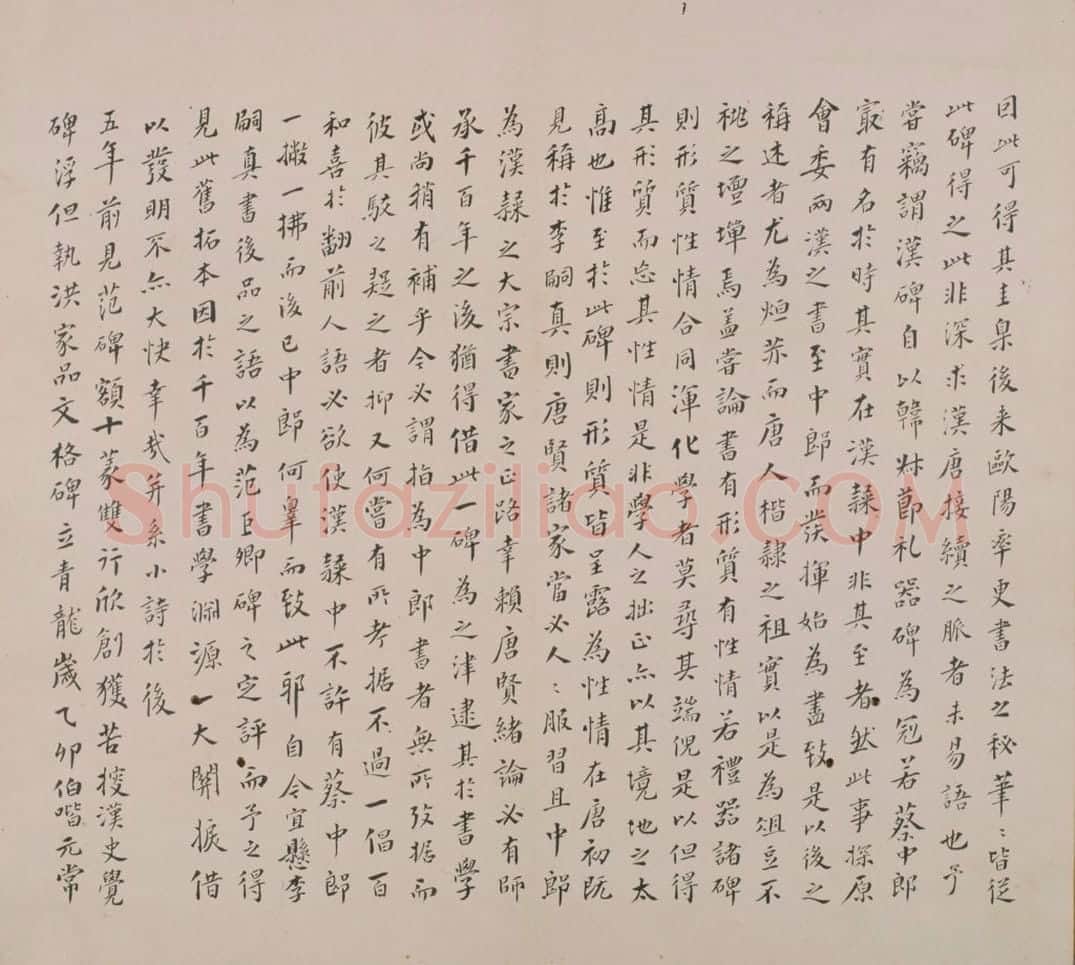 因此可得其圭臬後来歐陽率更書法之秘筆〻皆從
此碑得之此非深求漢唐接續之脈者未易語也予
嘗竊謂漢碑自以韓敕節礼器碑為冠若蔡中郎
最有名於時其實在漢隸中非其至者然此事探原
會委兩漢之書至中郎而發揮始為盡致是以後之
稱述者尤為烜赤而唐人楷隸之祖實以是為俎豆不
祧之壇墠焉盖嘗論書有形質有性情若禮器諸碑
則形質性情合同渾化學者莫尋其端倪是以但得
其形質而忘其性情是非學人之拙正亦以其境地之太
高也惟至於此碑則形質皆呈露為性情在唐初既
見稱於李嗣真則唐賢諸家當必人〻服習且中郎
為漢隸之大宗書家之正路幸賴唐賢緒論必有師
承千百年之後猶得借此一碑為之津逮其於書學
或尚稍有補乎今必謂指為中郎書者無所攷据而
彼其駁之疑之者抑又何嘗有所考据不過一倡百
和喜於翻前人語必欲使漢隸中不許有蔡中郎
一撇一拂而後已中郎何辜而致此耶自今宜懸李
嗣真書後品之語以為范巨卿碑之定評而予之得
見此舊拓本因於千百年書學淵源一大關捩借
以發明不亦大快幸哉并系小詩於後
五年前見范碑額十篆雙行欣創獲苦搜漢史覺
碑浮但執洪家品文格碑立青龍歲乙卯伯喈元常
Shufaziliao.COM